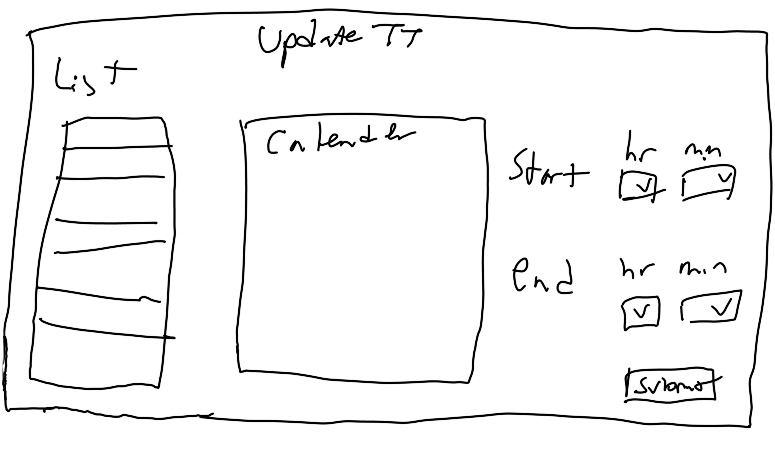 Update TT
List
Calender
Start hr min
end hr min
Submit